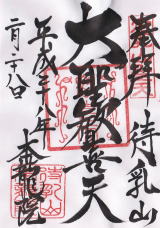 奉拝
待乳山
大聖歓喜天
本龍院
平成二十八年
二月二十八日